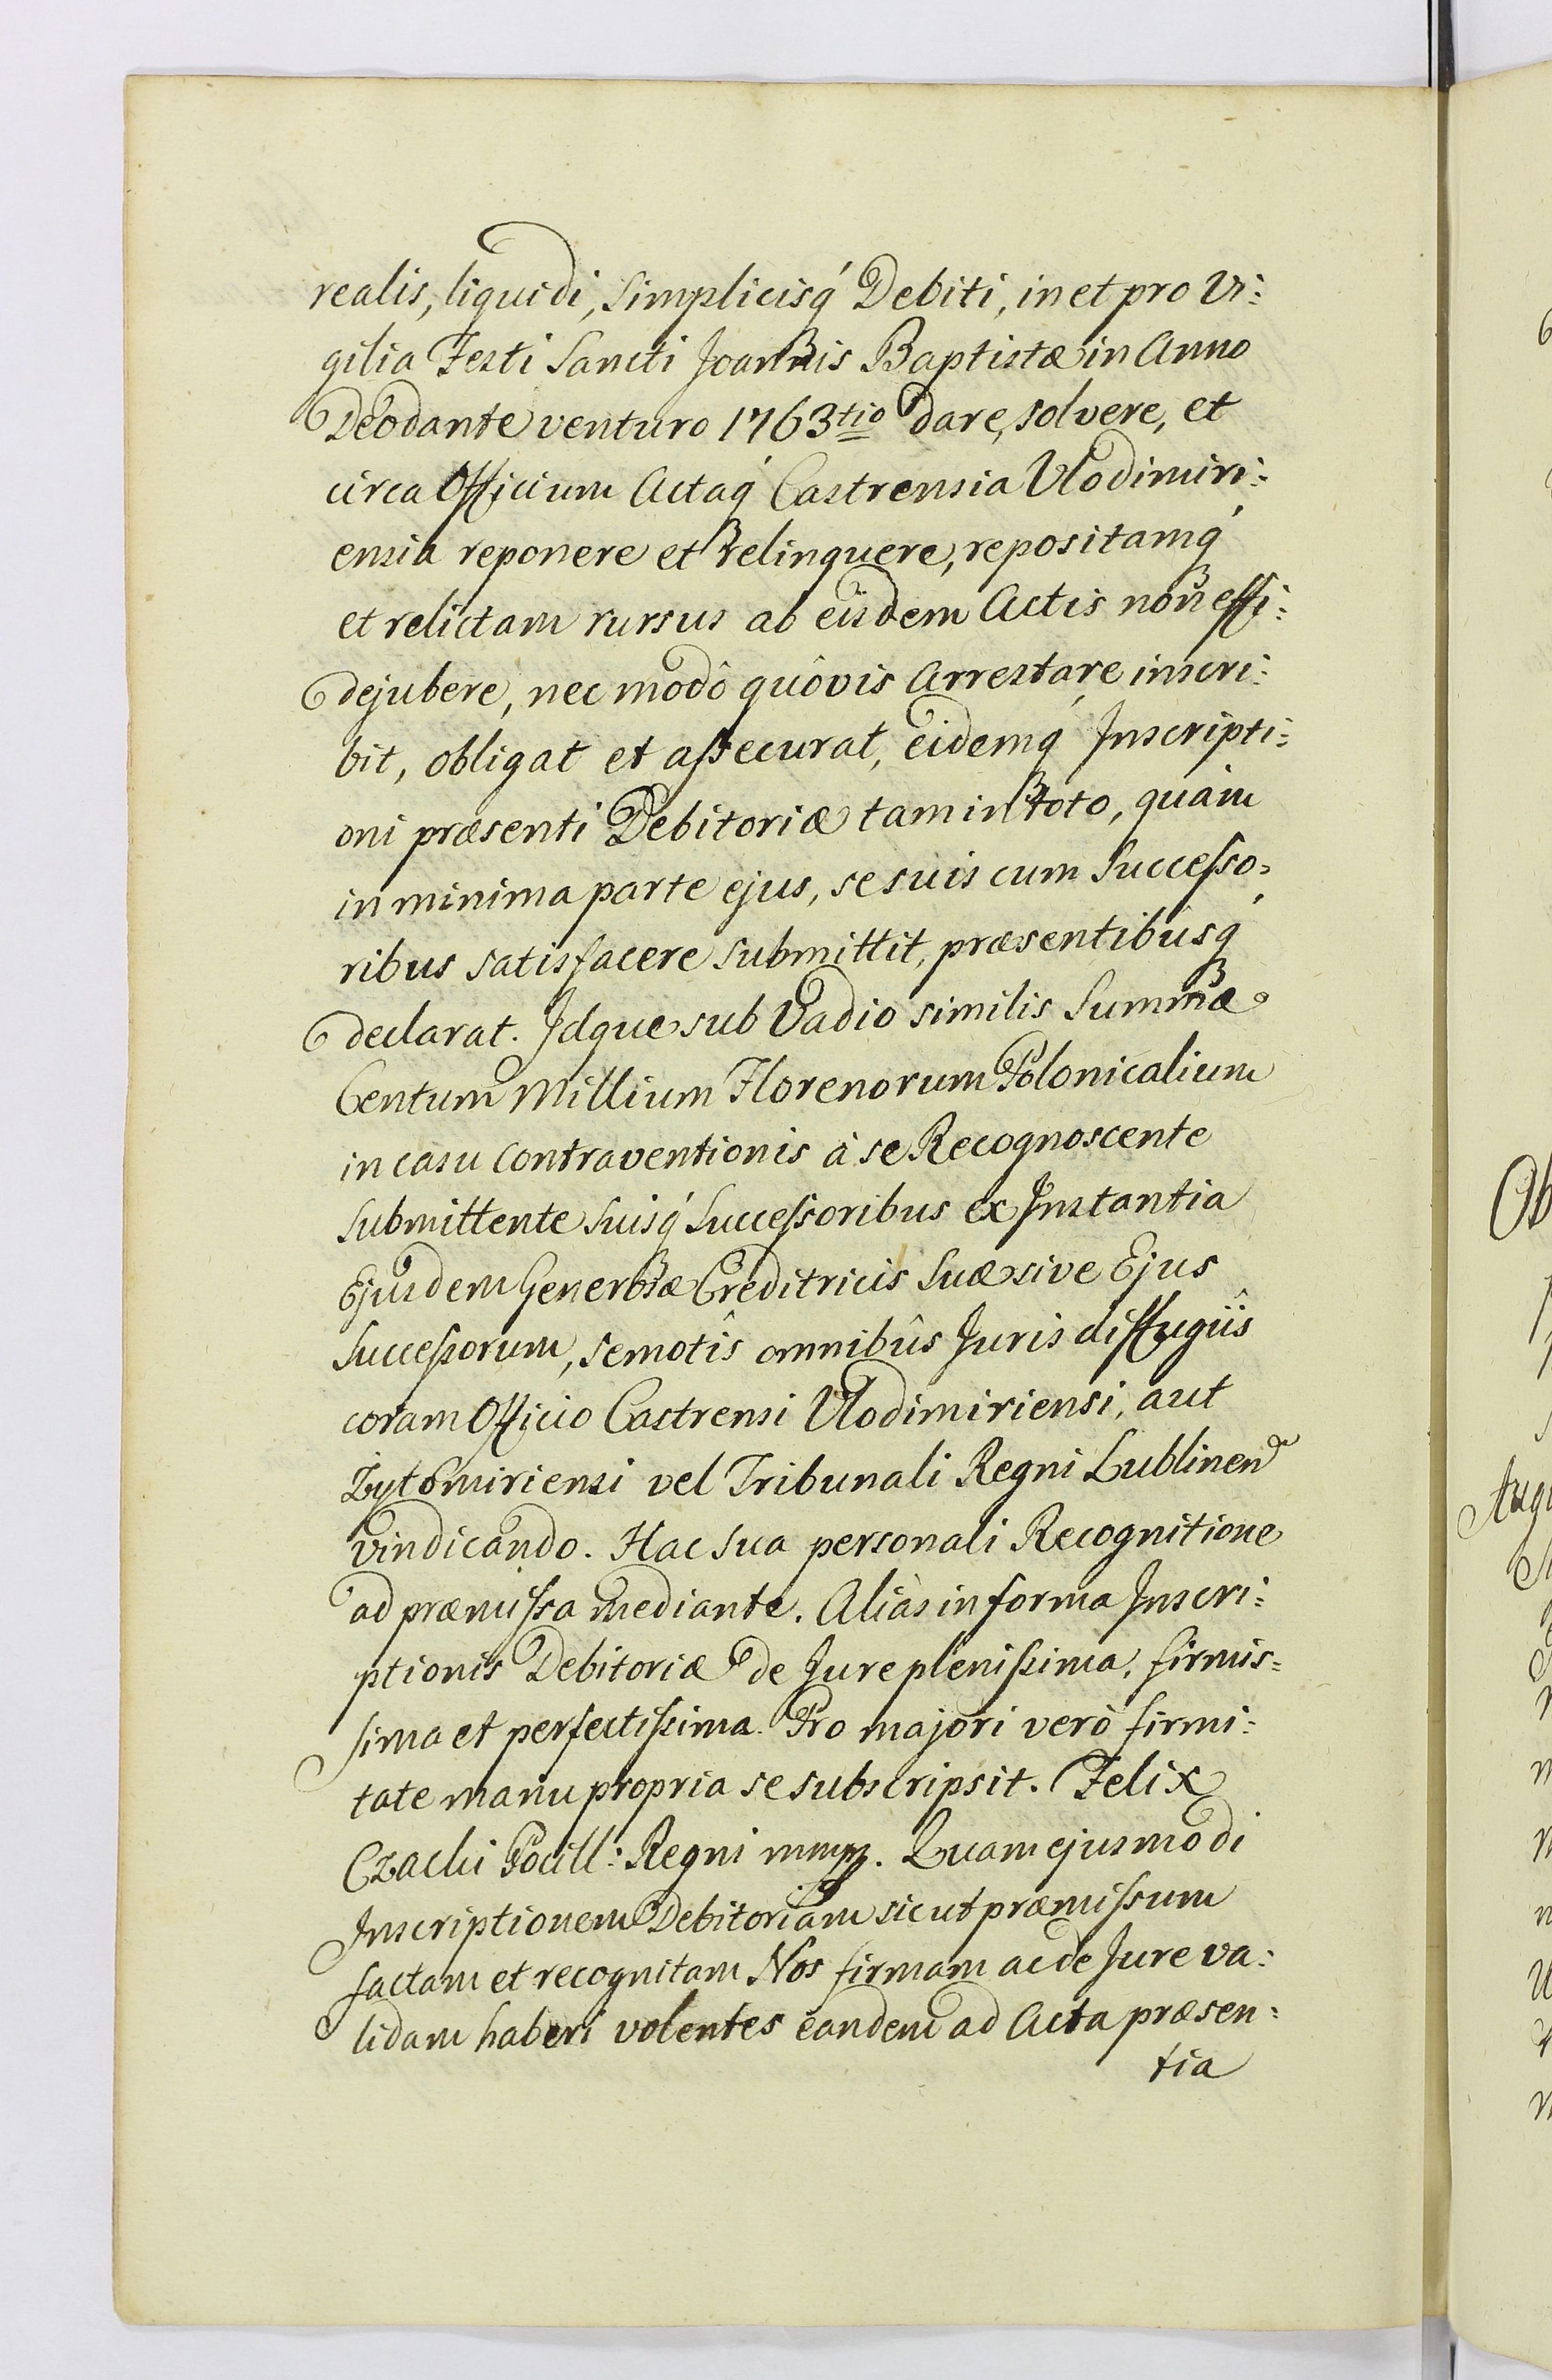 realis, liquidi, Simplicisq́ Debiti, in et pro Vi:
gilia Festi Sancti Joannis Baptistæ in Anno
Deodante venturo 1763tio dare, solvere, et
circa Officium Actaq́ Castrensia Vlodimiri:
ensia reponere et relinquere, repositamq́
et relictam rursus ab eisdem Actis non effi:
dejubere, nec modô quôvis Arrestare inscri:
bit, obligat et assecurat, eidemq́ Inscripti:
oni præsenti Debitoriæ tam in toto, quàm
in minima parte ejus, se suis cum Successo=
ribus satisfacere submittit, præsentibusq́
declarat. Idque sub Vadio similis Summæ
Centum Millium Florenorum Polonicalium
in casu Contraventionis à se Recognoscente
Submittente Suisq́ Successoribus ex Instantia
Ejusdem Generosæ Creditricis Suæ sive Ejus
Successorum, semotîs omnibûs Juris diffugiîs
coram Officio Castrensi Vlodimiriensi, aut
Zytomiriensi vel Tribunali Regni Lublinen
vindicando. Hac Sua personali Recognitione
ad præmissa mediante. Aliàs in forma Inscri:
ptionis Debitoriæ de Jure plenissima, firmis=
sima et perfectissima. Pro majori verò firmi:
tate manu propria se subscripsit. Felix
Czacki Pocill: Regni mmp. Quam ejusmodi
Inscriptionem Debitoriam sicut præmissum
factam et recognitam Nos firmam ac de Jure va:
lidam haberi volentes eandem ad Acta præsen:
tia